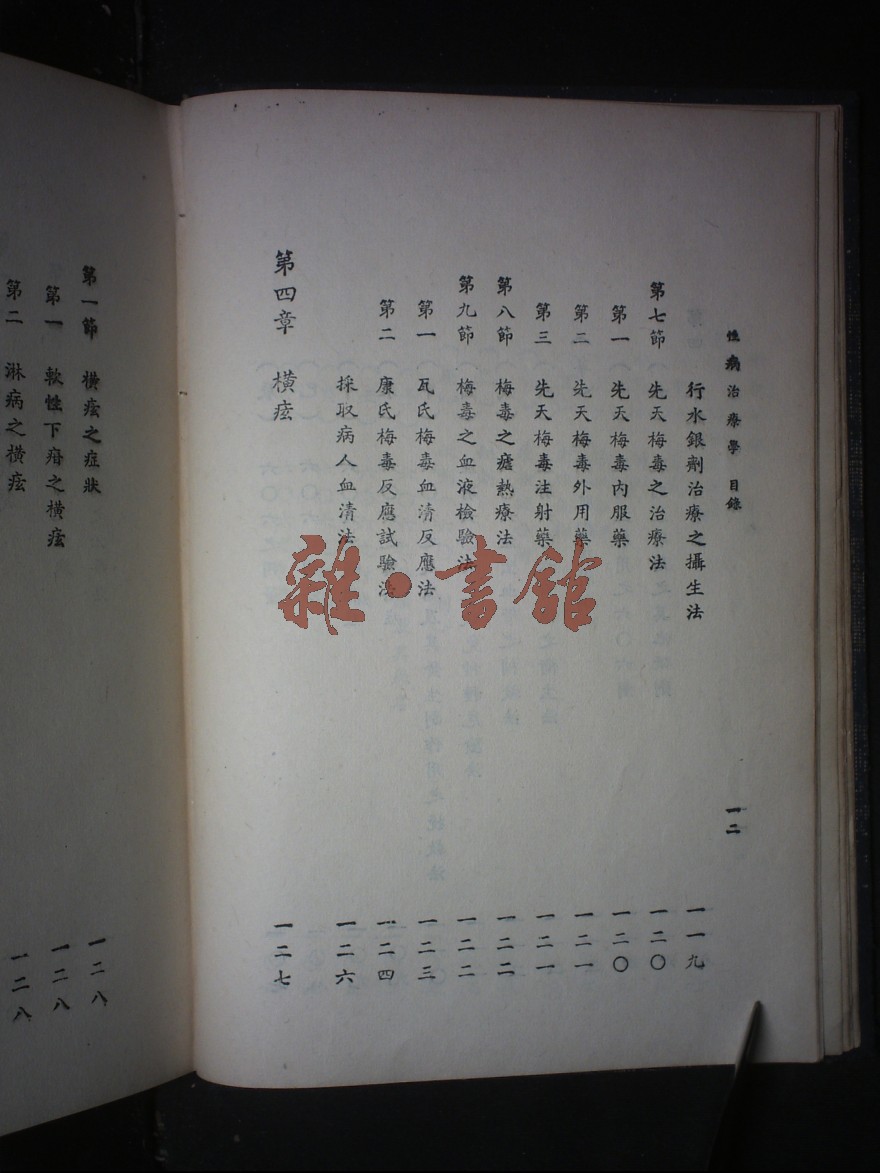 性病治療學 目錄 一二
行水銀劑治療之攝生法 一一九
第七節 先天梅毒之治療法 一二〇
第一 先天梅毒內服藥 一二〇
第二 先天梅毒外用藥 一二一
第三 先天梅毒注射藥 一二一
第八節 梅毒之瘧熱療法 一二二
第九節 梅毒之血液檢驗法 一二二
第一 瓦氏梅毒血清反應法 一二三
第二 康氏梅毒反應試驗法 一二四
採取病人血清法 一二六
第四章 橫痃 一二七
第一節 橫痃之症狀 一二八
第一 軟性下疳之橫痃 一二八
第二 淋病之橫痃 一二八
雜·書館